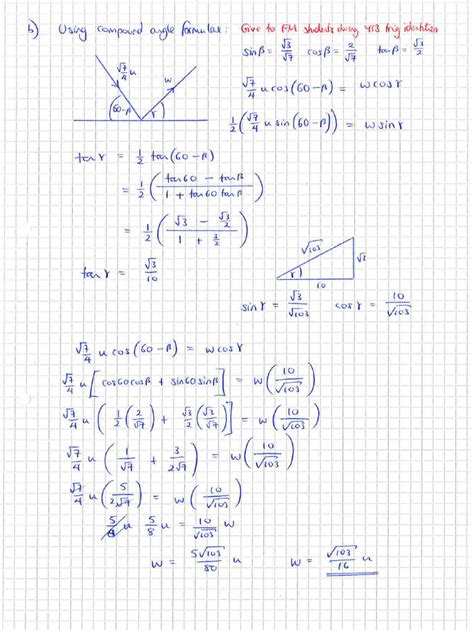 b) Using compound angle formulae: Give to FM students doing Y13 trig identities
sinβ = √3/√7 cosβ = 2/√7 tanβ = √3/2
√7/4 u w
(60-β) γ
√7/4 u cos(60-β) = w cosγ
1/2(√7/4 u sin(60-β)) = w sinγ
tanγ = 1/2 tan(60-β)
= 1/2((tan60 - tanβ)/(1 + tan60 tanβ))
= 1/2((√3 - √3/2)/(1 + 3/2))
tanγ = √3/10
√103 √3
γ
10
sinγ = √3/√103 cosγ = 10/√103
√7/4 u cos(60-β) = w cosγ
√7/4 u [cos60cosβ + sin60sinβ] = w(10/√103)
√7/4 u (1/2(2/√7) + √3/2(√3/√7)] = w(10/√103)
√7/4 u (1/√7 + 3/2√7) = w(10/√103)
√7/4 u (5/2√7) = w(10/√103)
5/8 u = 10/√103 w
w = 5√103/80 u w = √103/16 u